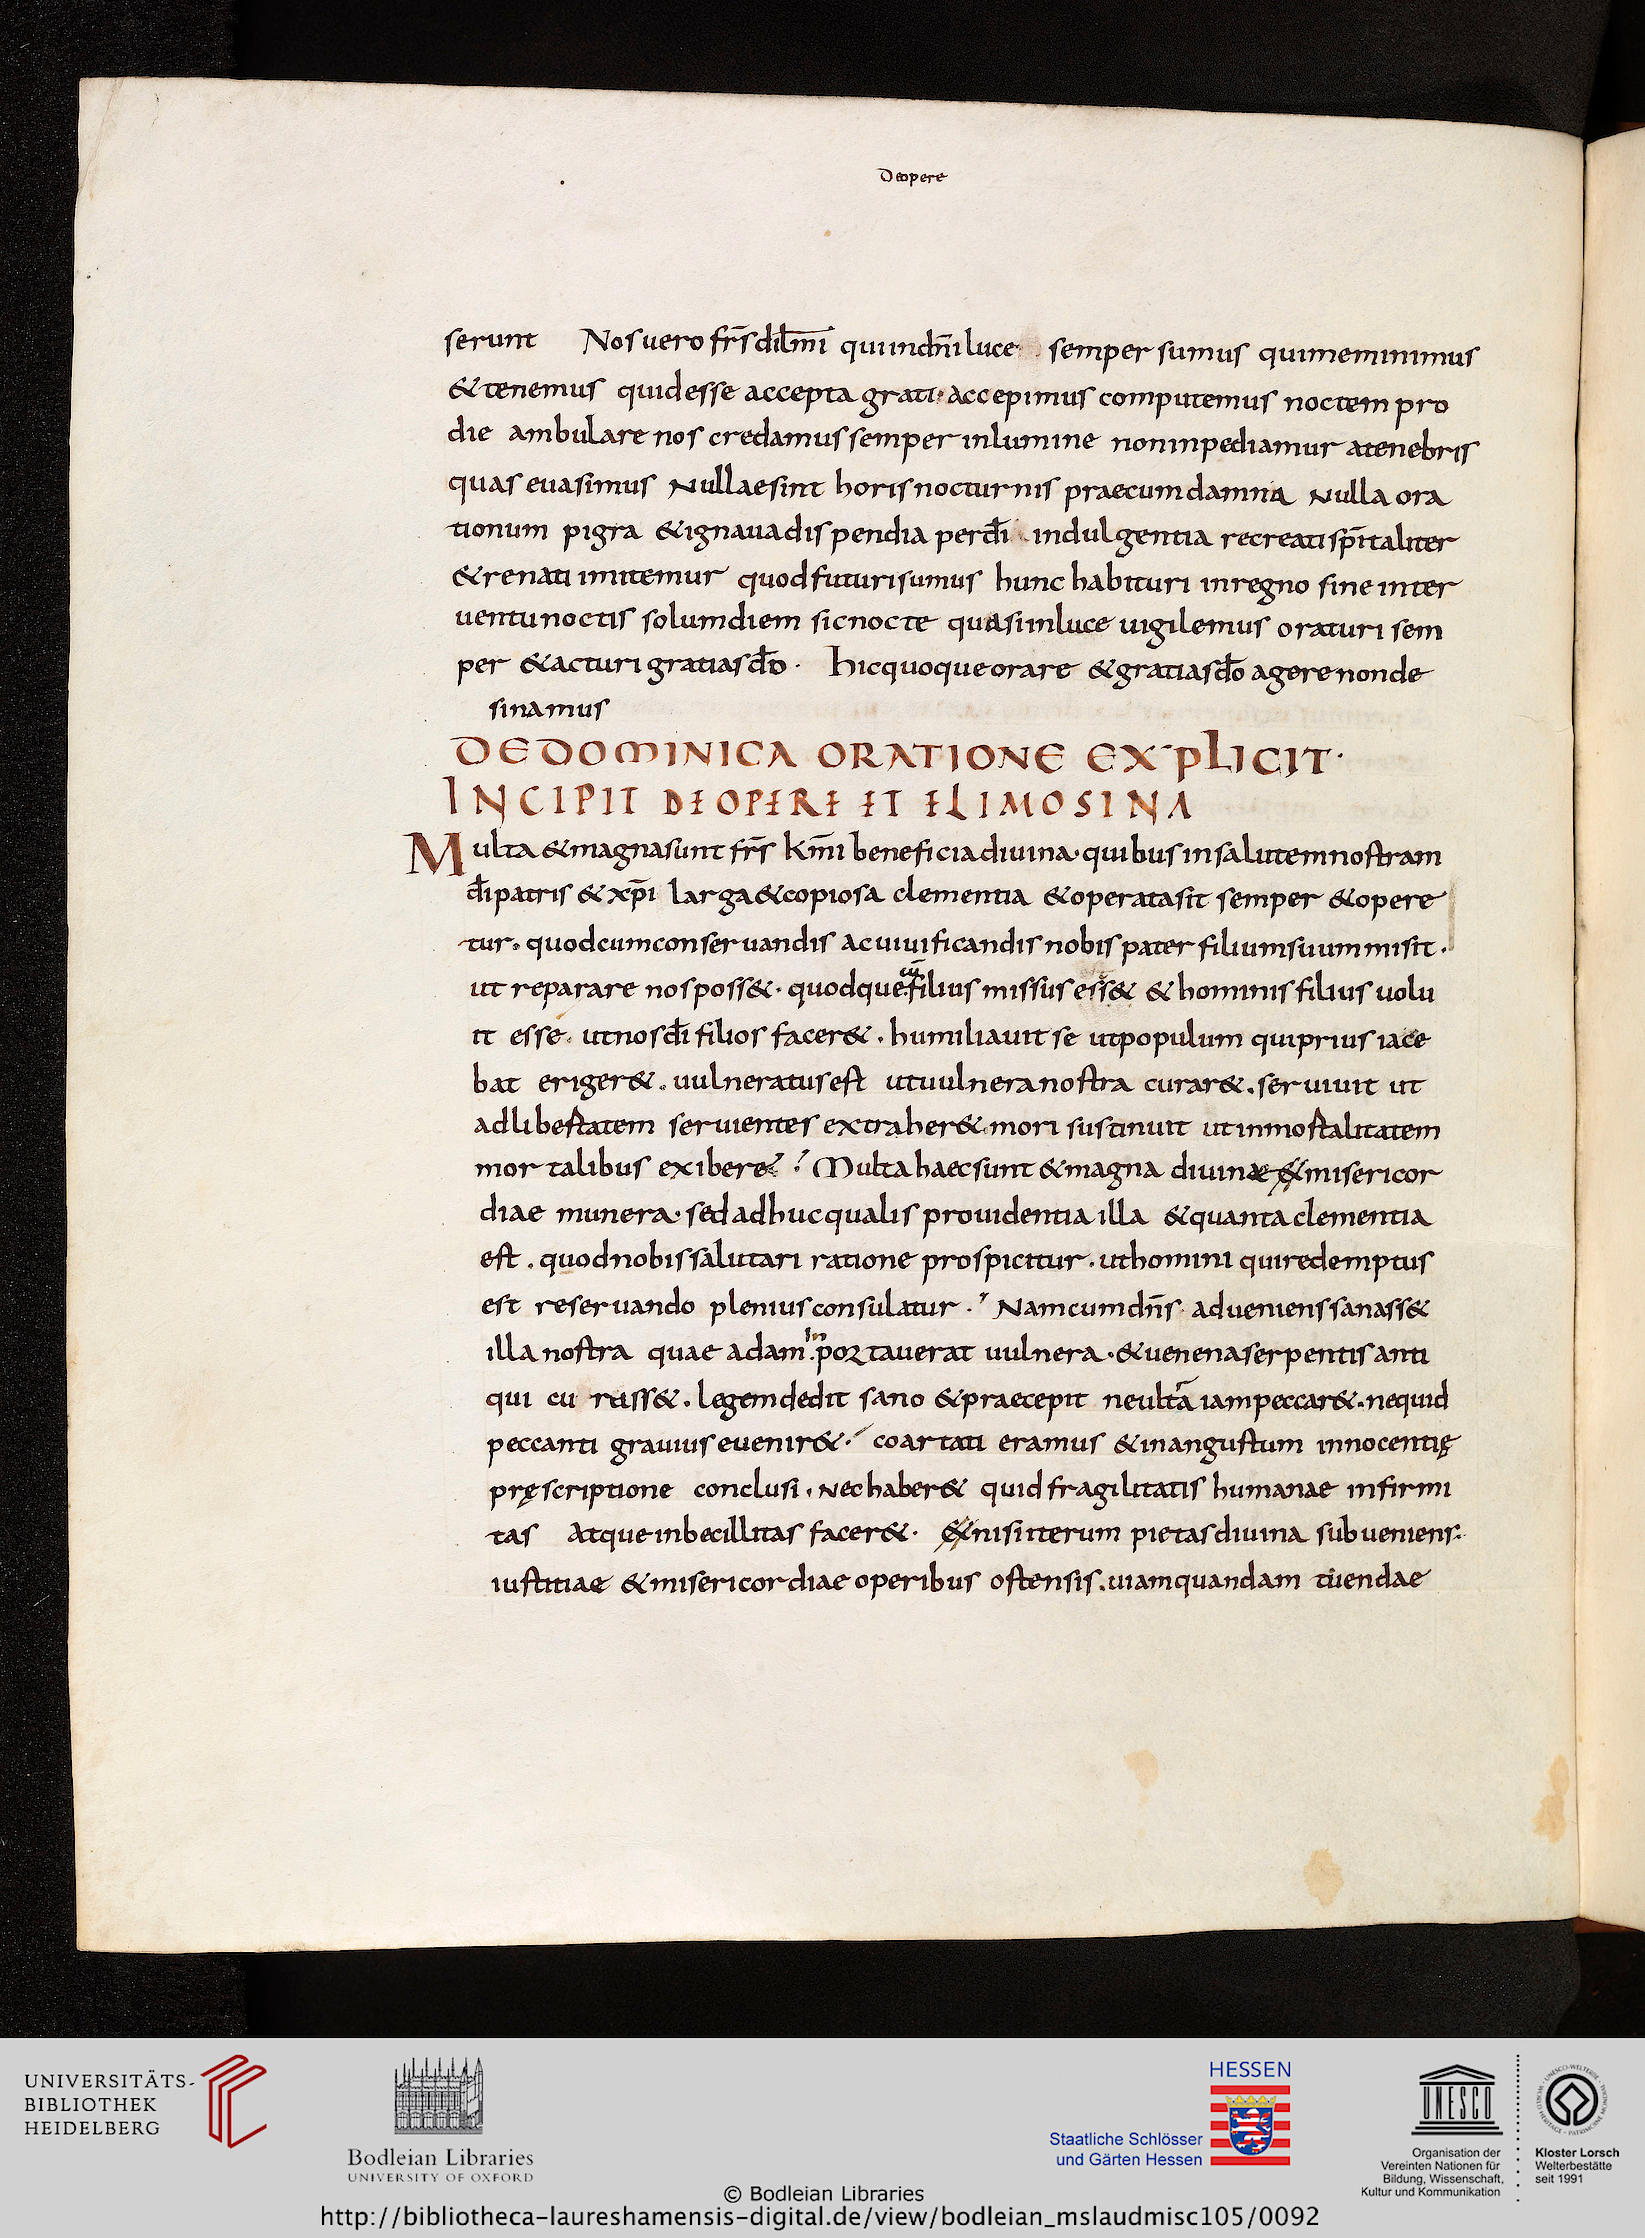 Deopere
serunt Nos uero fr̄s dil̄mi qui indn̄i luce semper sumus qui meminimus
& tenemus quid esse accepta grati accepimus computemus noctem pro
die ambulare nos credamus semper inlumine non inpediamur atenebris
quas euasimus Nullae sint horis nocturnis praecum damna Nulla ora
tionum pigra & ignaua dispendia perdi indulgentia recreati sp̄italiter
& renati imitemur quod futuri sumus hunc habituri inregno sine inter
uentu noctis solum diem sic nocte quasi inluce uigilemus oraturi sem
per & acturi gratias dō · hic quoque orare & gratias dō agere non de
sinamus
DE DOMINICA ORATIONE EXPLICIT ·
INCIPIT DE OPERE ET ELIMOSINA
Multa & magna sunt fr̄s k̄mi beneficia diuina · quibus insalutem nostram
dī patris & xp̄i larga & copiosa clementia & operata sit semper & opere
tur . quod cum conseruandis ac uiuificandis nobis pater filium suum misit .
ut reparare nos poss& · quodque filius missus ess& & hominis filius uolu
it esse . ut nos dī filios facer& . humiliauit se ut populum qui prius iace
bat eriger& . uulneratus est ut uulnera nostra curar& . seruiuit ut
ad libertatem seruientes extraher& . mori sustinuit ut inmortalitatem
mortalibus exibere Multa haec sunt & magna diuinae & misericor
diae munera · sed adhuc qualis prouidentia illa & quanta clementia
est . quod nobis salutari ratione prospicitur . ut homini qui redemptus
est reseruando plenius consulatur . Nam cum dn̄s adueniens sanass&
illa nostra quae adam portauerat uulnera · & uenena serpentis anti
qui cu rass& . legem dedit sano & praecepit ne ult̄a iam peccar& . ne quid
peccanti grauius euenir& · coartati eramus & in angustum innocentię
pręscriptione conclusi . Nec haber& quid fragilitatis humanae infirmi
tas Atque inbecillitas facer& · & nisi iterum pietas diuina subueniens
iustitiae & misericordiae operibus ostensis . uiam quandam tuendae
UNIVERSITÄTS-
BIBLIOTHEK
HEIDELBERG
Bodleian Libraries
UNIVERSITY OF OXFORD
HESSEN
Staatliche Schlösser
und Gärten Hessen
UNESCO
Organisation der
Vereinten Nationen für
Bildung, Wissenschaft,
Kultur und Kommunikation
Kloster Lorsch
Welterbestätte
seit 1991
© Bodleian Libraries
http://bibliotheca-laureshamensis-digital.de/view/bodleian_mslaudmisc105/0092